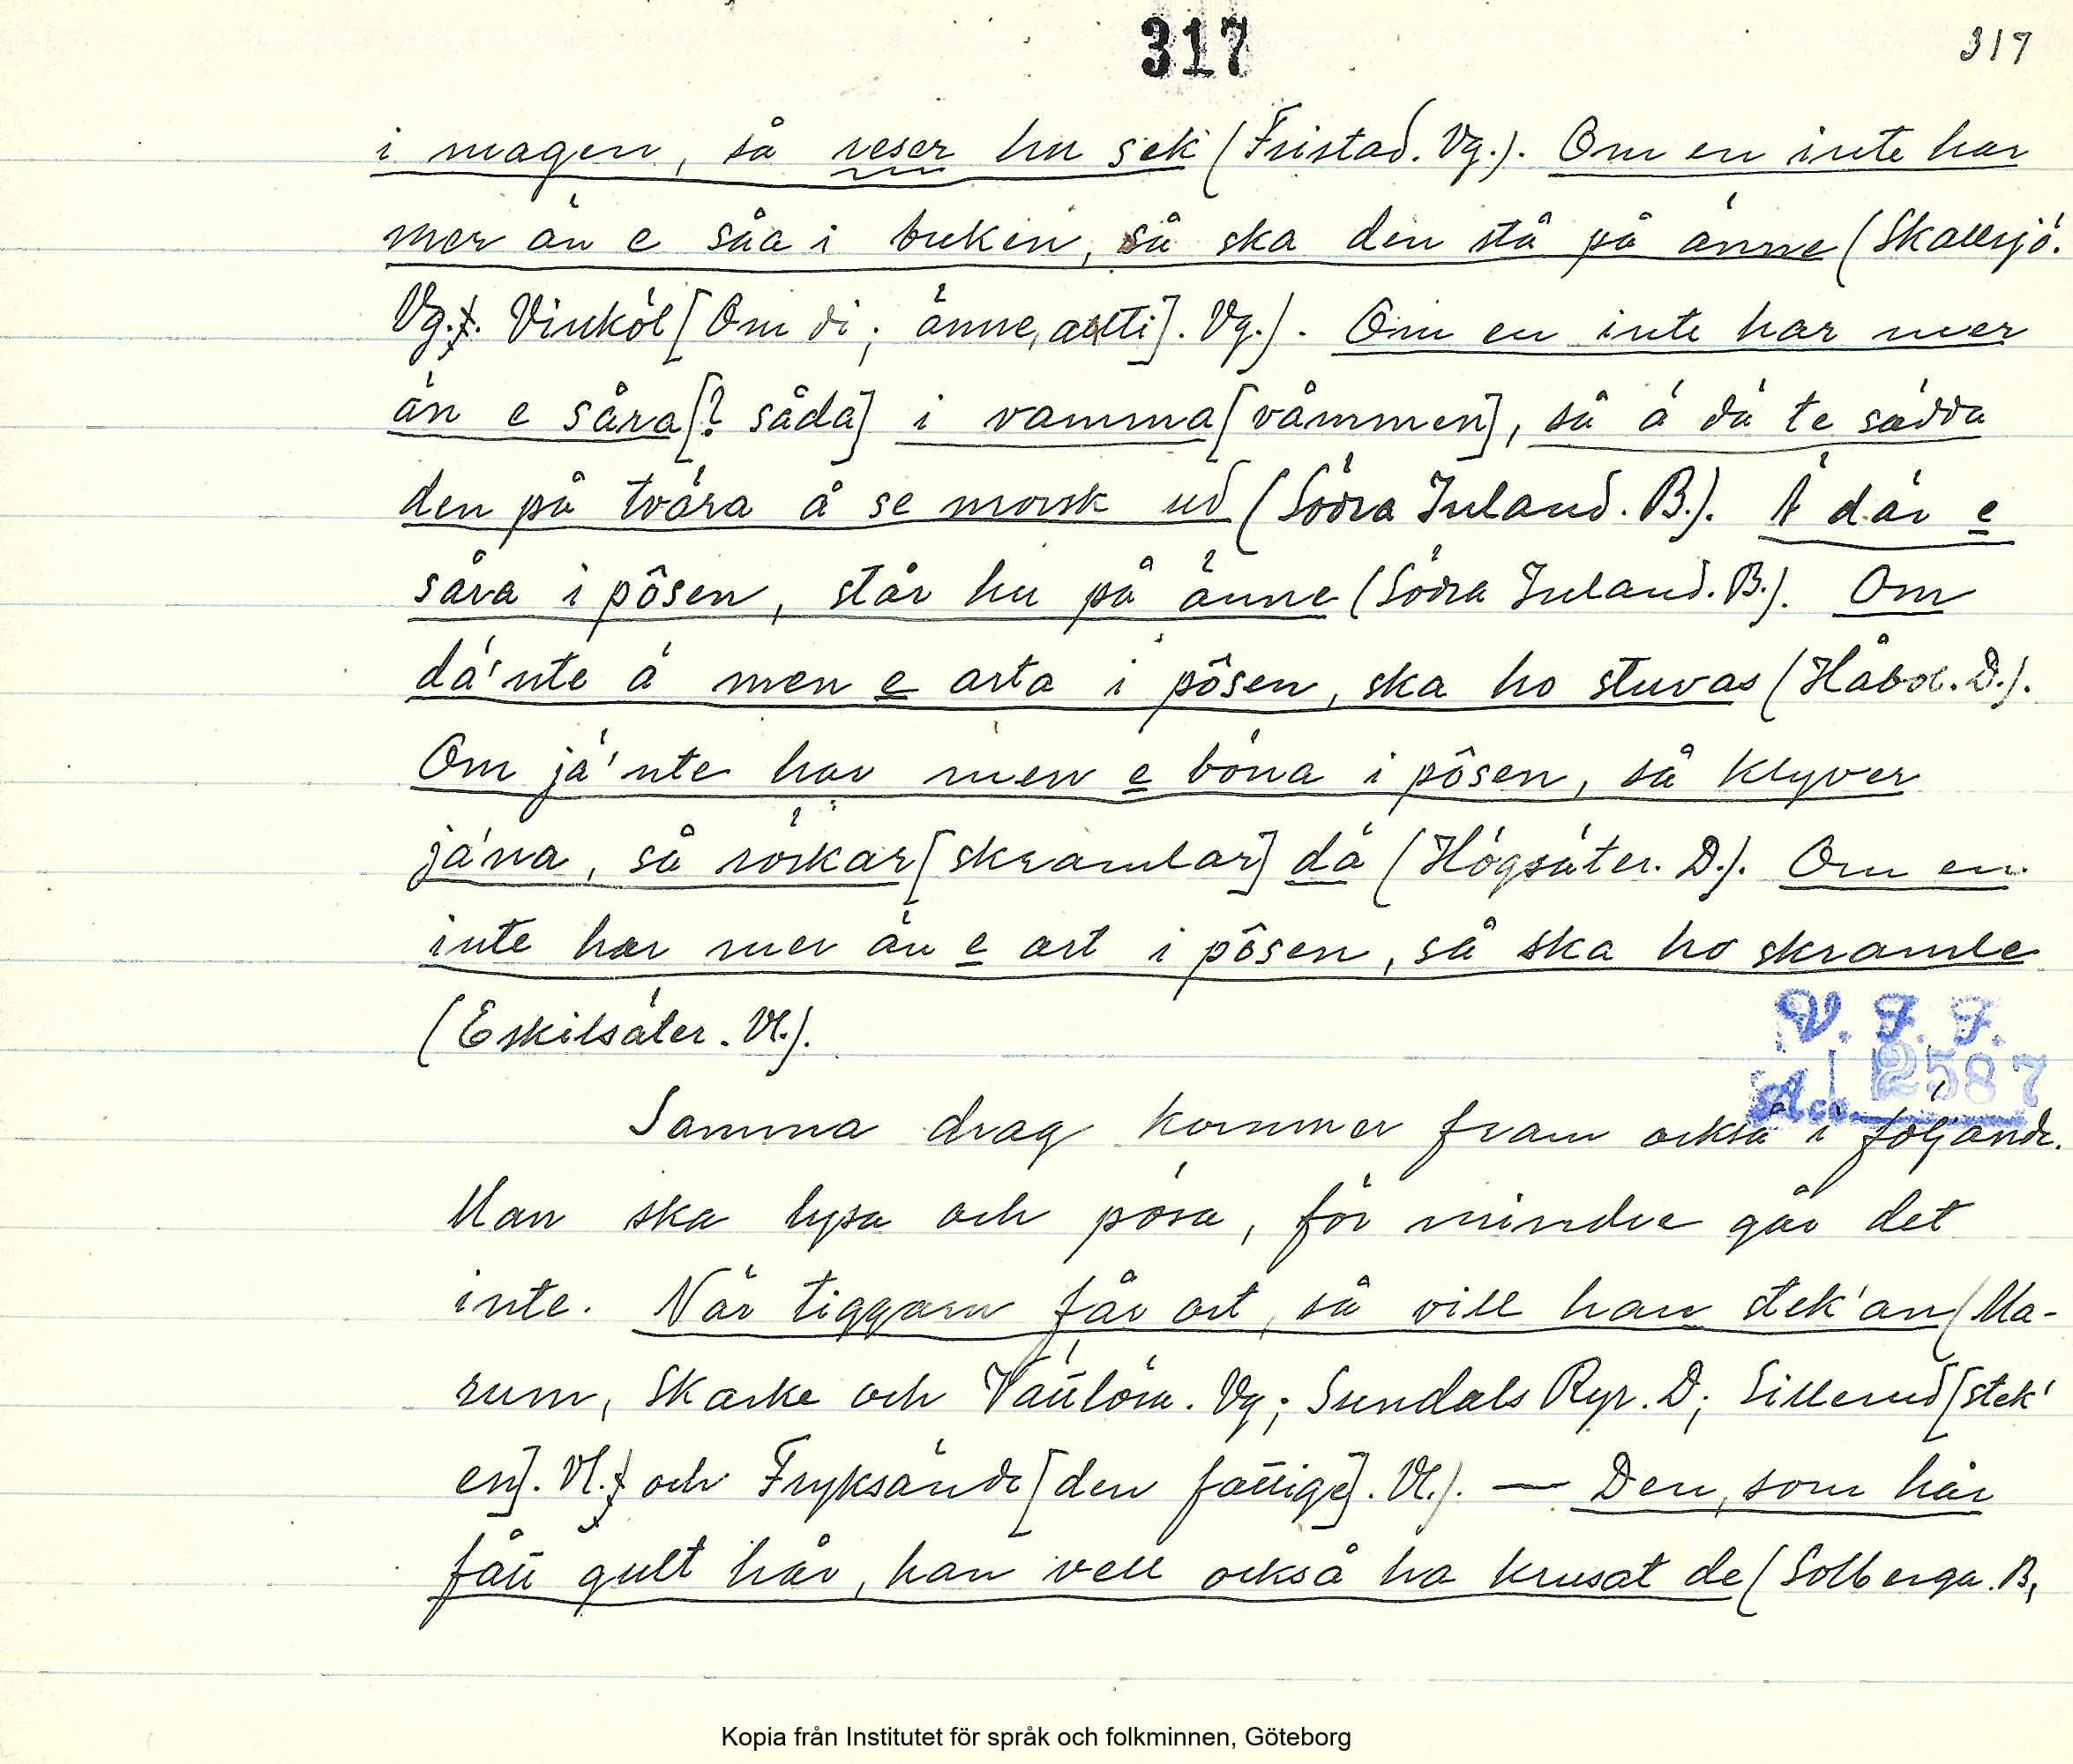 317
317
i magen, så reser hu sek (Fristad. Vg.). Om en inte har
mer än e såa i buken, så ska den stå på änne (Skallsjö.
Vg. Vinköl [Om di; änne, allti]. Vg.). Om en inte har mer
än e såra [? såda] i vamma [våmmen], så ä dä te sädda
den på tvära å se morsk ud (Södra Inland. B.). Ä där e
såra i pôsen, står hu på änne (Södra Inland. B.). Om
dä'nte ä men e arta i pôsen, ska ho stuvas (Håbol. D.).
Om jä'nte har men e böna i pôsen, så klyver
jä'na, så röskar [skramlar] dä (Högsäter. D.). Om en
inte har mer än e art i pôsen, så ska ho skramle
(Eskilsäter. Vl.).
V. F. F.
Acc. 2587
Samma drag kommer fram också i följande.
Man ska lysa och pösa, för mindre går det
inte. När tiggarn får art, så vill han stek'an (Ma-
rum, Skarke och Väúlösa. Vg; Sundals Ryr. D; Sillerud [stek'
en]. Vl. och Fryksände [den fattige]. Vl.). — Den, som här
fåú gult hår, han vell också ha krusat de (Solberga. B,
Kopia från Institutet för språk och folkminnen, Göteborg